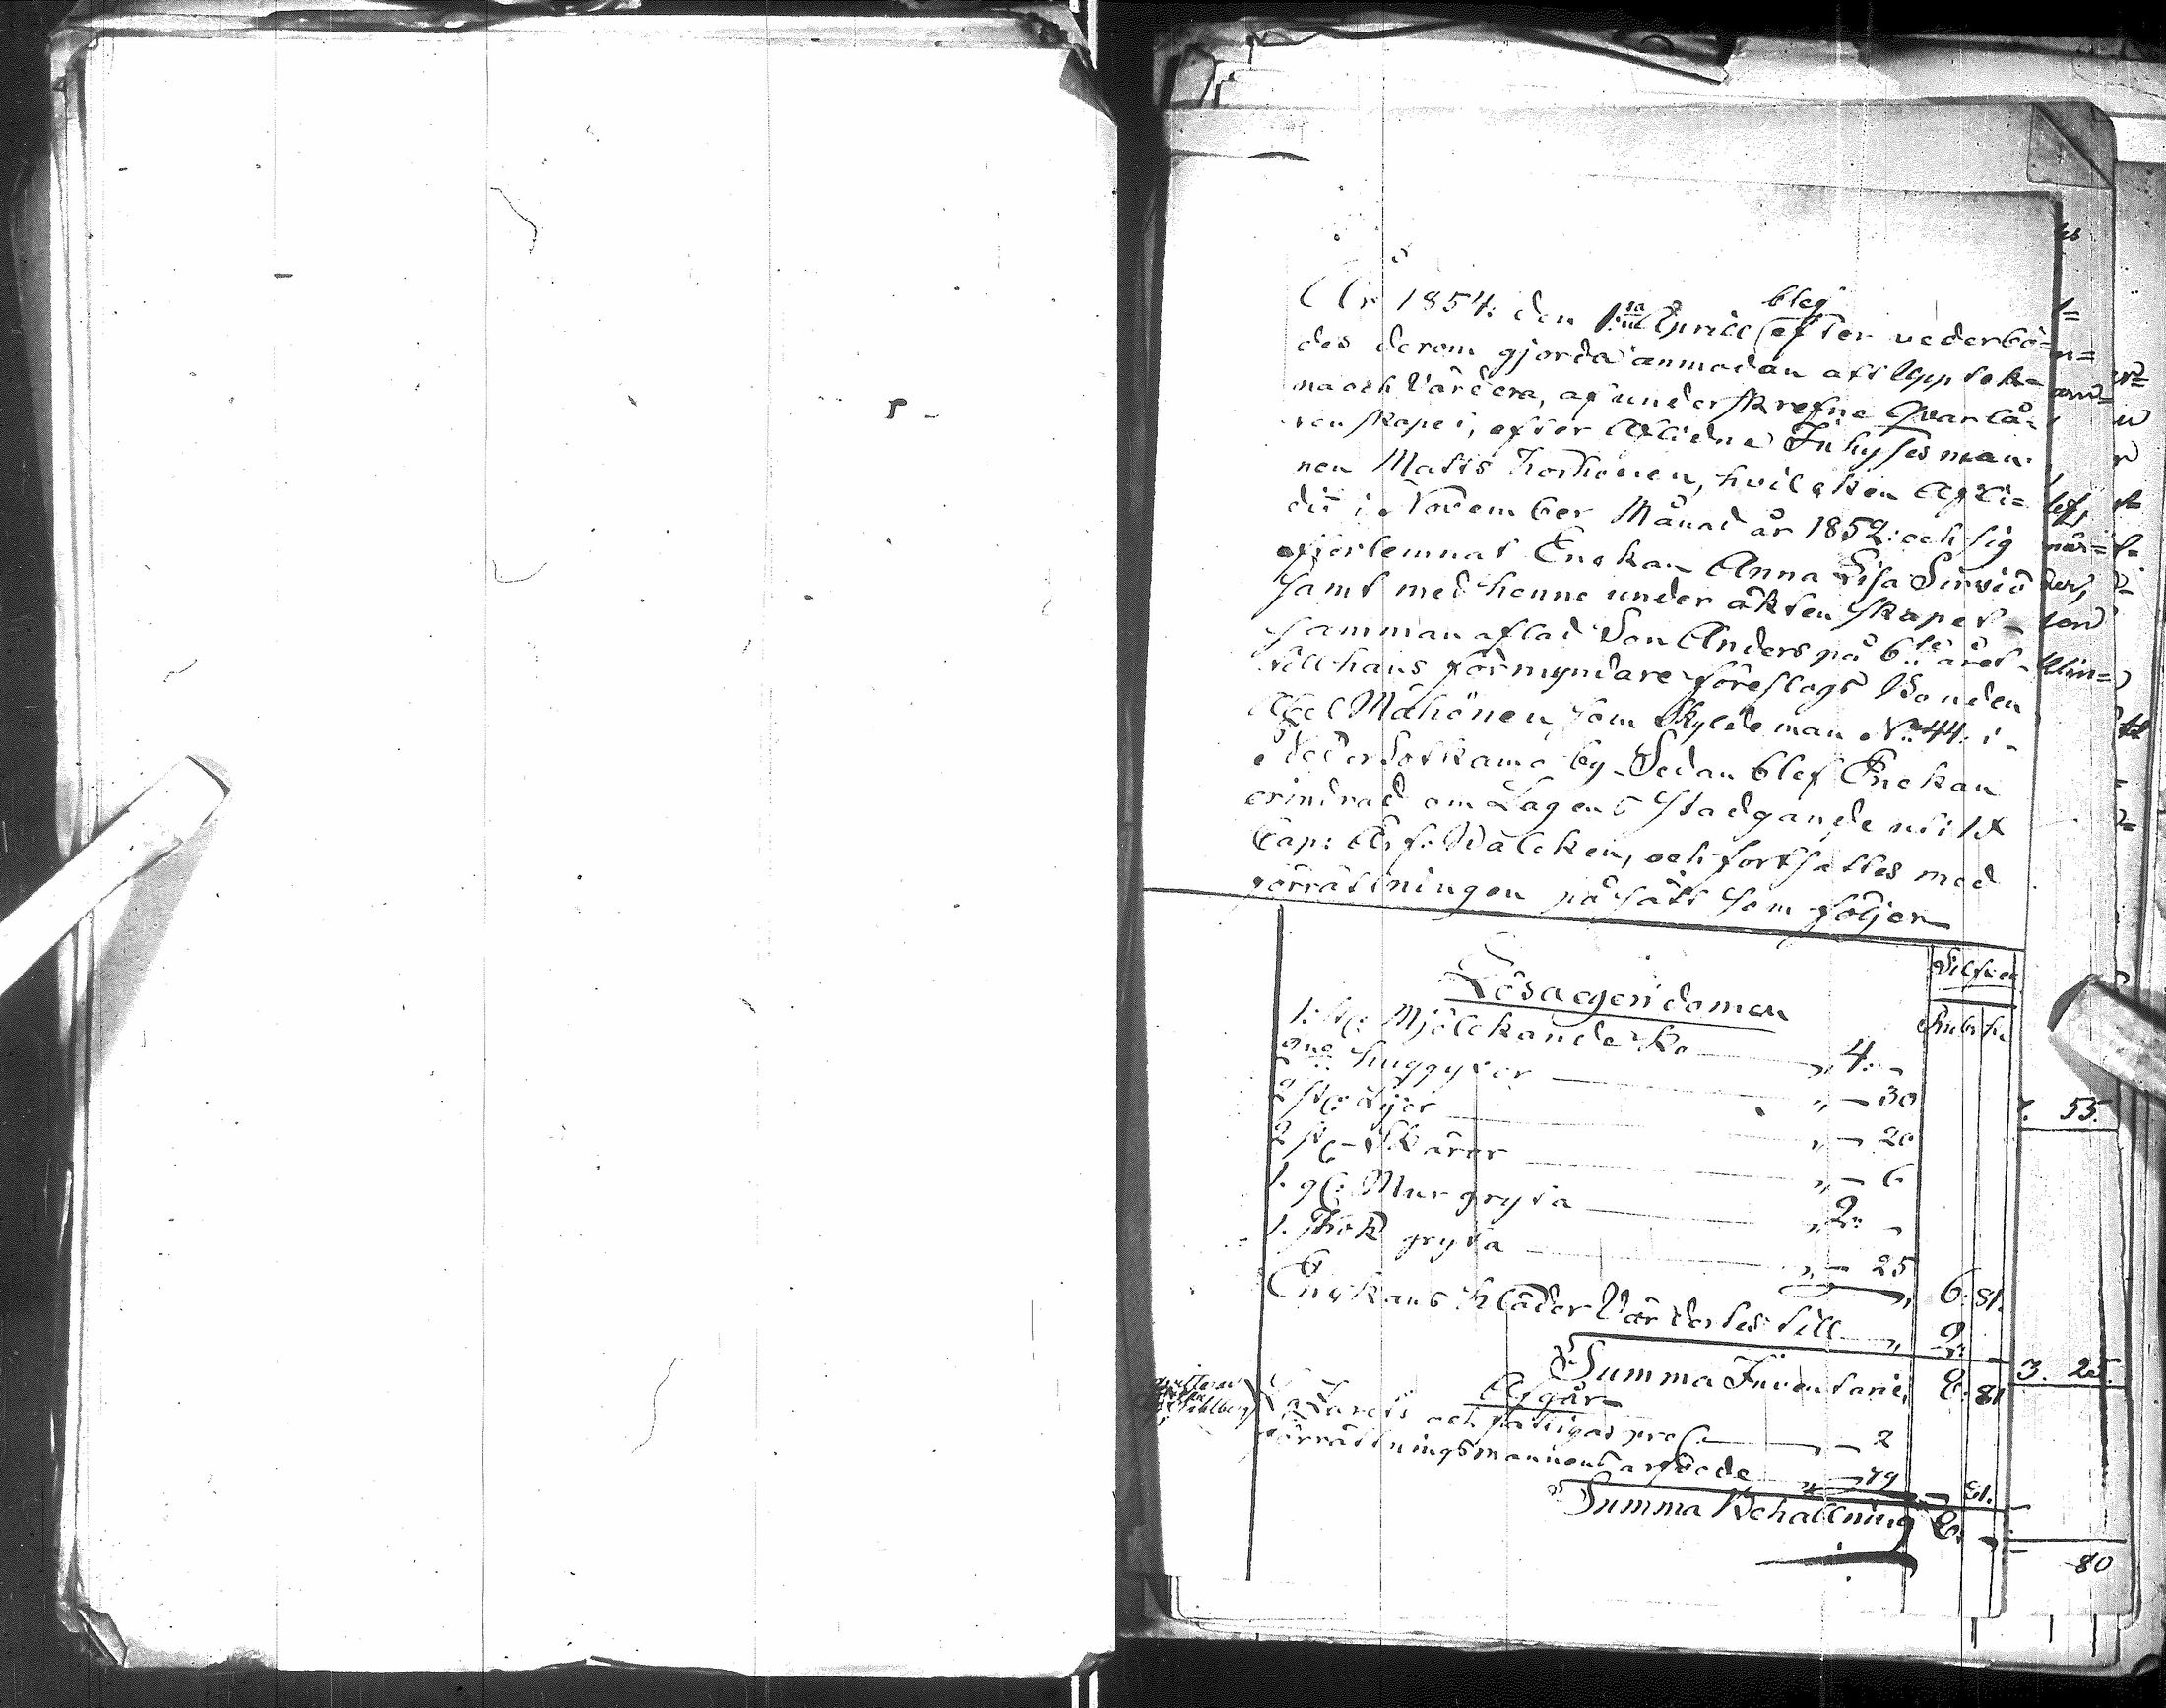 År 1854: den 1:sta Aprill blef efter vederbö=
des derom gjorda anmodan att Uppteck=
na och Värdera, af underskrefne Qvarlå=
tenskapen, efter Aflidne Inhysesman=
nen Matts Korhonen, hvilcken Afli=
dit i November Månad år 1852: och sig
efterlemnat Enckan Anna Lisa Sirviö
samt med henne under äktenskapet
sammanaflad Son Anders på 6:te året
till hans förmyndare föreslogs Bonden
Abel Mähönen som Skyldeman No 44: i
Neder Sotkamo by. Sedan blef Enckan
erindrad om Lagens stadgande uti IX
Cap: Ärf. Balcken, och fortsattes med
förrättningen på sätt som följer
Silfver
Lösaegendomen
Rub: ko
1: st: Mjölckande Ko " 4: -
2ne huggyxor " - 30
2 st: Lijor " - 20
2 st: Skäror " - 6
1. st: Mur gryta " 2: -
1. Kok gryta " - 25 " 6: 81.
Enckans kläder Värdertes till " 2
Summa Inventarie 8: 81
Afgår
Lazarets och fattigas pro C: " - 2
förrättningsmannens arfvode " - 79 - 81.
Summa Behållning 8: -
7. 55.
3. 25.
80